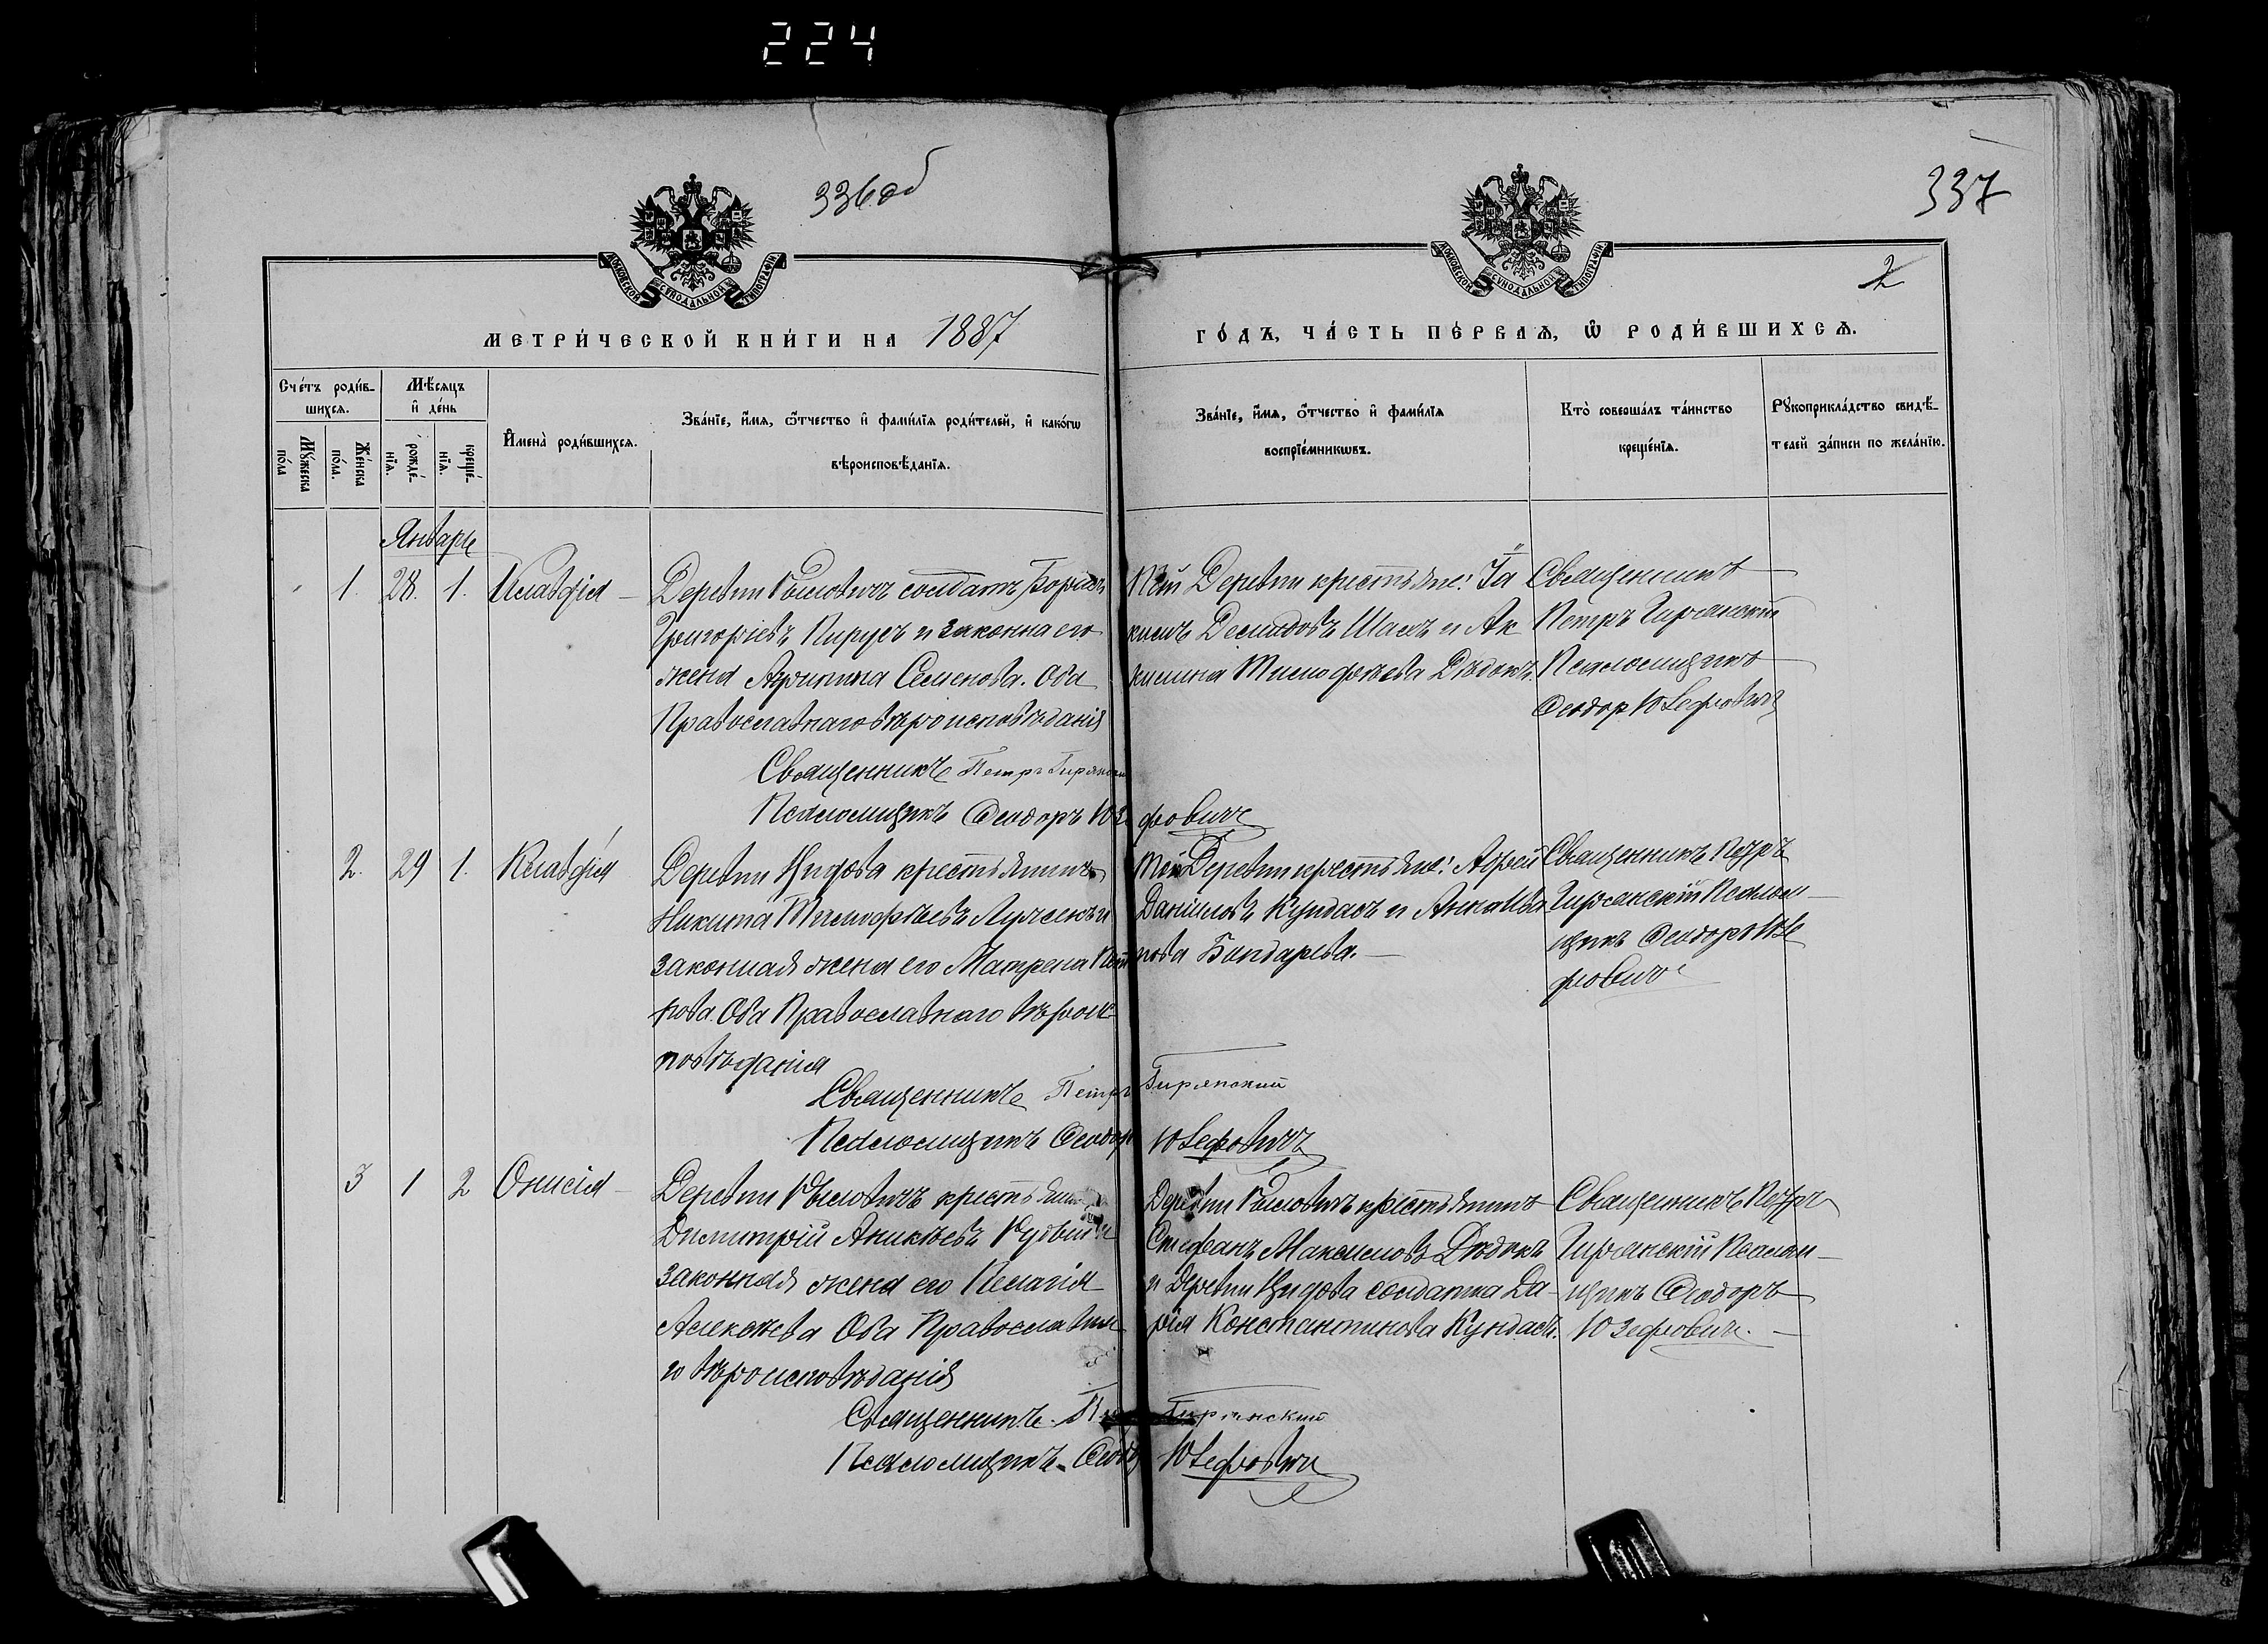 224
336 об
337
МОСКОВСКОЙ СѴНОДАЛЬНОЙ ТИПОГРАФІИ
МОСКОВСКОЙ СѴНОДАЛЬНОЙ ТИПОГРАФІИ
2
МЕТРИ́ЧЕСКОЙ КНИ́ГИ НА 1887
ГО́ДЪ, ЧА́СТЬ ПЕ́РВАѦ, Ѡ҆ РОДИ́ВШИХСѦ.
Сче́тъ роди́в-
шихсѧ.
Мѣ́сѧцъ
и҆ де́нь
Мꙋ́жеска
по́ла
Же́нска
по́ла.
рожде́-
нїѧ.
креще́-
нїѧ.
И҆мена̀ роди́вшихсѧ.
Зва́нїе, и҆́мѧ, ѻ҆́тчество и҆ фами́лїѧ роди́телей, и҆ како́гѡ
вѣроисповѣ́данїѧ.
Зва́нїе, и҆́мѧ, ѻ҆́тчество и҆ фами́лїѧ
воспрїе́мникѡвъ.
Кто̀ соверша́лъ та́инство
креще́нїѧ.
Рꙋкоприкла́дство свидѣ́-
телей за́писи по жела́нїю.
Январь
1. 28. 1. Клавдія
Деревни солдатъ Борисъ
Григоріевъ и законна его
жена Агрипина Семенова. Оба
Православнаго вѣроисповѣданія
Священникъ Петръ Гирянскій
Псаломщикъ Феодоръ Юзефовичъ
Той Деревни крестьяне: Іа
кимъ Демидовъ Шахъ и Ак
килина Тимофеева
Священникъ
Петръ Гирянскій
Псаломщикъ
Феодоръ Юзефовичъ
2. 29 1. Клавдія
Деревни крестьянинъ
Никита Тимофѣевъ и
законная жена его Матрена Пет
рова. Оба Православнаго вѣроис
повѣданія
Священникъ Петръ Гирянскій
Псаломщикъ Феодоръ Юзефовичъ
Той Деревни крестьяне: Андрей
Даніиловъ Кундасъ и Анна
нова Бондарева.
Священникъ Петръ
Гирянскій Псалом
щикъ Феодоръ Юзе
фовичъ
3 1 2 Онисія
Деревни крестьянинъ
Димитрій Аникѣевъ и
законная жена его Пелагія
Алексѣева Оба Православна
го вѣроисповѣданія
Священникъ Петръ Гирянскій
Псаломщикъ Феодоръ Юзефовичъ
Деревни крестьянинъ
Стефанъ Максимовъ
и Деревни солдатка Да
рія Константинова Кундасъ.
Священникъ Петръ
Гирянскій Псалом
щикъ Феодоръ
Юзефовичъ.